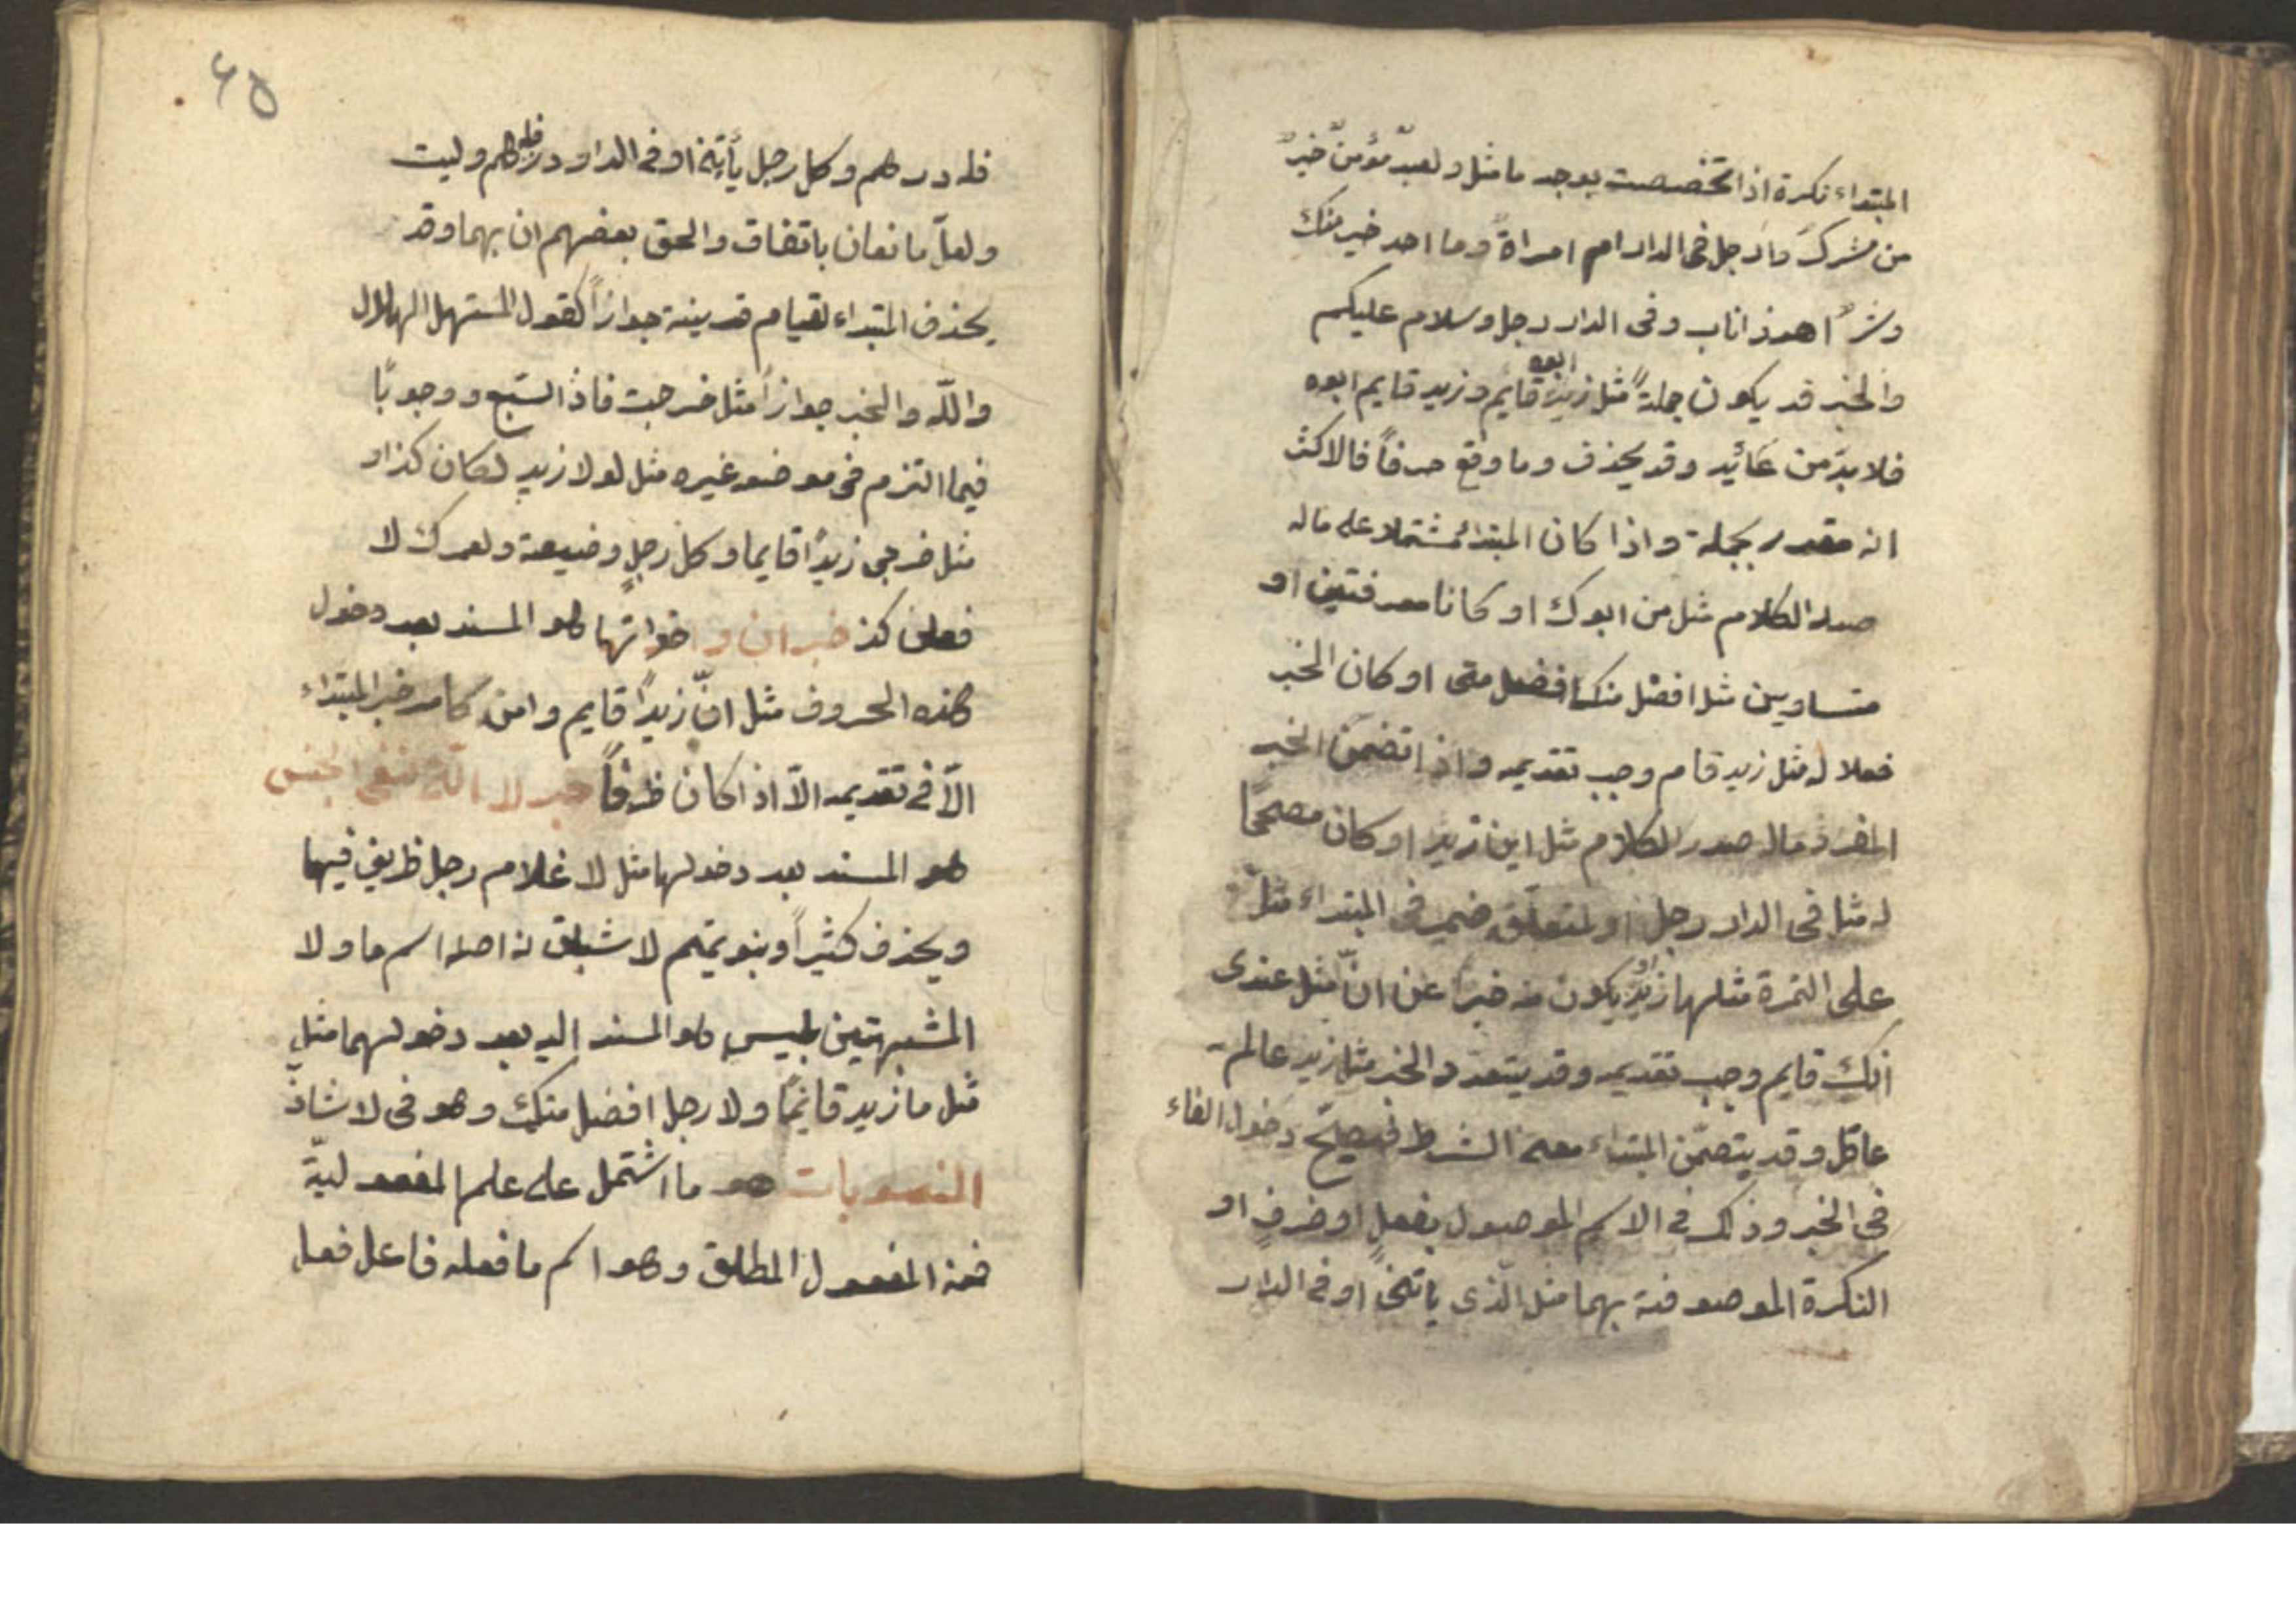 المبتداء نكرة اذا تخصصت بوجه ما مثل ولعبدٌ مؤمنٌ خيرٌ
من مشرك وارجل فى الدار ام امراة وما احد خير منك
وشرٌ اهر ذا ناب وفى الدار رجل وسلام عليكم
والخبر قد يكون جملةً مثل زيدٌ ابوه قايم وزيد قايم ابوه
فلا بدّ من عائيد وقد يحذف وما وقع صرفاً فالاكثر
انه مقدر بجملة واذا كان المبتداء مشتملا على ماله
صدر الكلام مثل من ابوك او كانا معرفتين او
متساويين مثل افضل منك افضل منى او كان الخبر
فعلا له مثل زيد قام وجب تقديمه واذا تضمن الخبر
المفرد ماله صدر الكلام مثل اين زيد او كان مصححًا
له مثل فى الدار رجل او لمتعلقه ضمير فى المبتداء مثل
على التمرة مثلها زبدٌ او يكون خبراً عن انّ مثل عندى
انك قايم وجب تقديمه وقد يتعدد الخبر مثل زيد عالم
عاقل وقد يتضمّن المبتداء معنى الشرط فيصلح دخول الفاء
فى الخبر وذلك فى الاسم الموصول بفعلٍ او ضرفٍ او
النكرة الموصوفة بهما مثل الّذى ياتينى او فى الدار
٤٥
فله درهم وكل رجل يأتينى او فى الدار فله درهم وليت
ولعلّ مانعان باتفاق والحق بعضهم ان بهما وقد
يحذف المبتداء لقيام قرينة جوازاً كقول المستهل الهلال
واللّه والخبر جوازاً مثل خرجت فاذ السّبع ووجوبًا
فيما التزم فى موضع غيره مثل لولا زيد لكان كذا و
مثل ضربى زيدًا قايما وكل رجلٍ وضيعة ولعمرك لا
فعلن كذ خبر ان واخواتها هو المسند بعد دخول
هذه الحروف مثل انّ زيدًا قايم وامره كامر خبر المبتداء
الاّ فى تقديمه الاّ اذا كان ظرفاً خبر لا الّتى لنفى الجنس
هو المسند بعد دخولها مثل لا غلام رجل ظريف فيها
ويحذف كثيراً وبنو تميم لا اسم ما ولا
المشبهتين بليس هو المسند اليه بعد دخولهما مثل
مثل ما زيد قائمًا ولا رجل افضل منك وهو فى لا شاذّ
المنصوبات هو ما اشتمل على علم المفعوليّة
فمنه المفعول المطلق وهو اسم ما فعله فاعل فعل